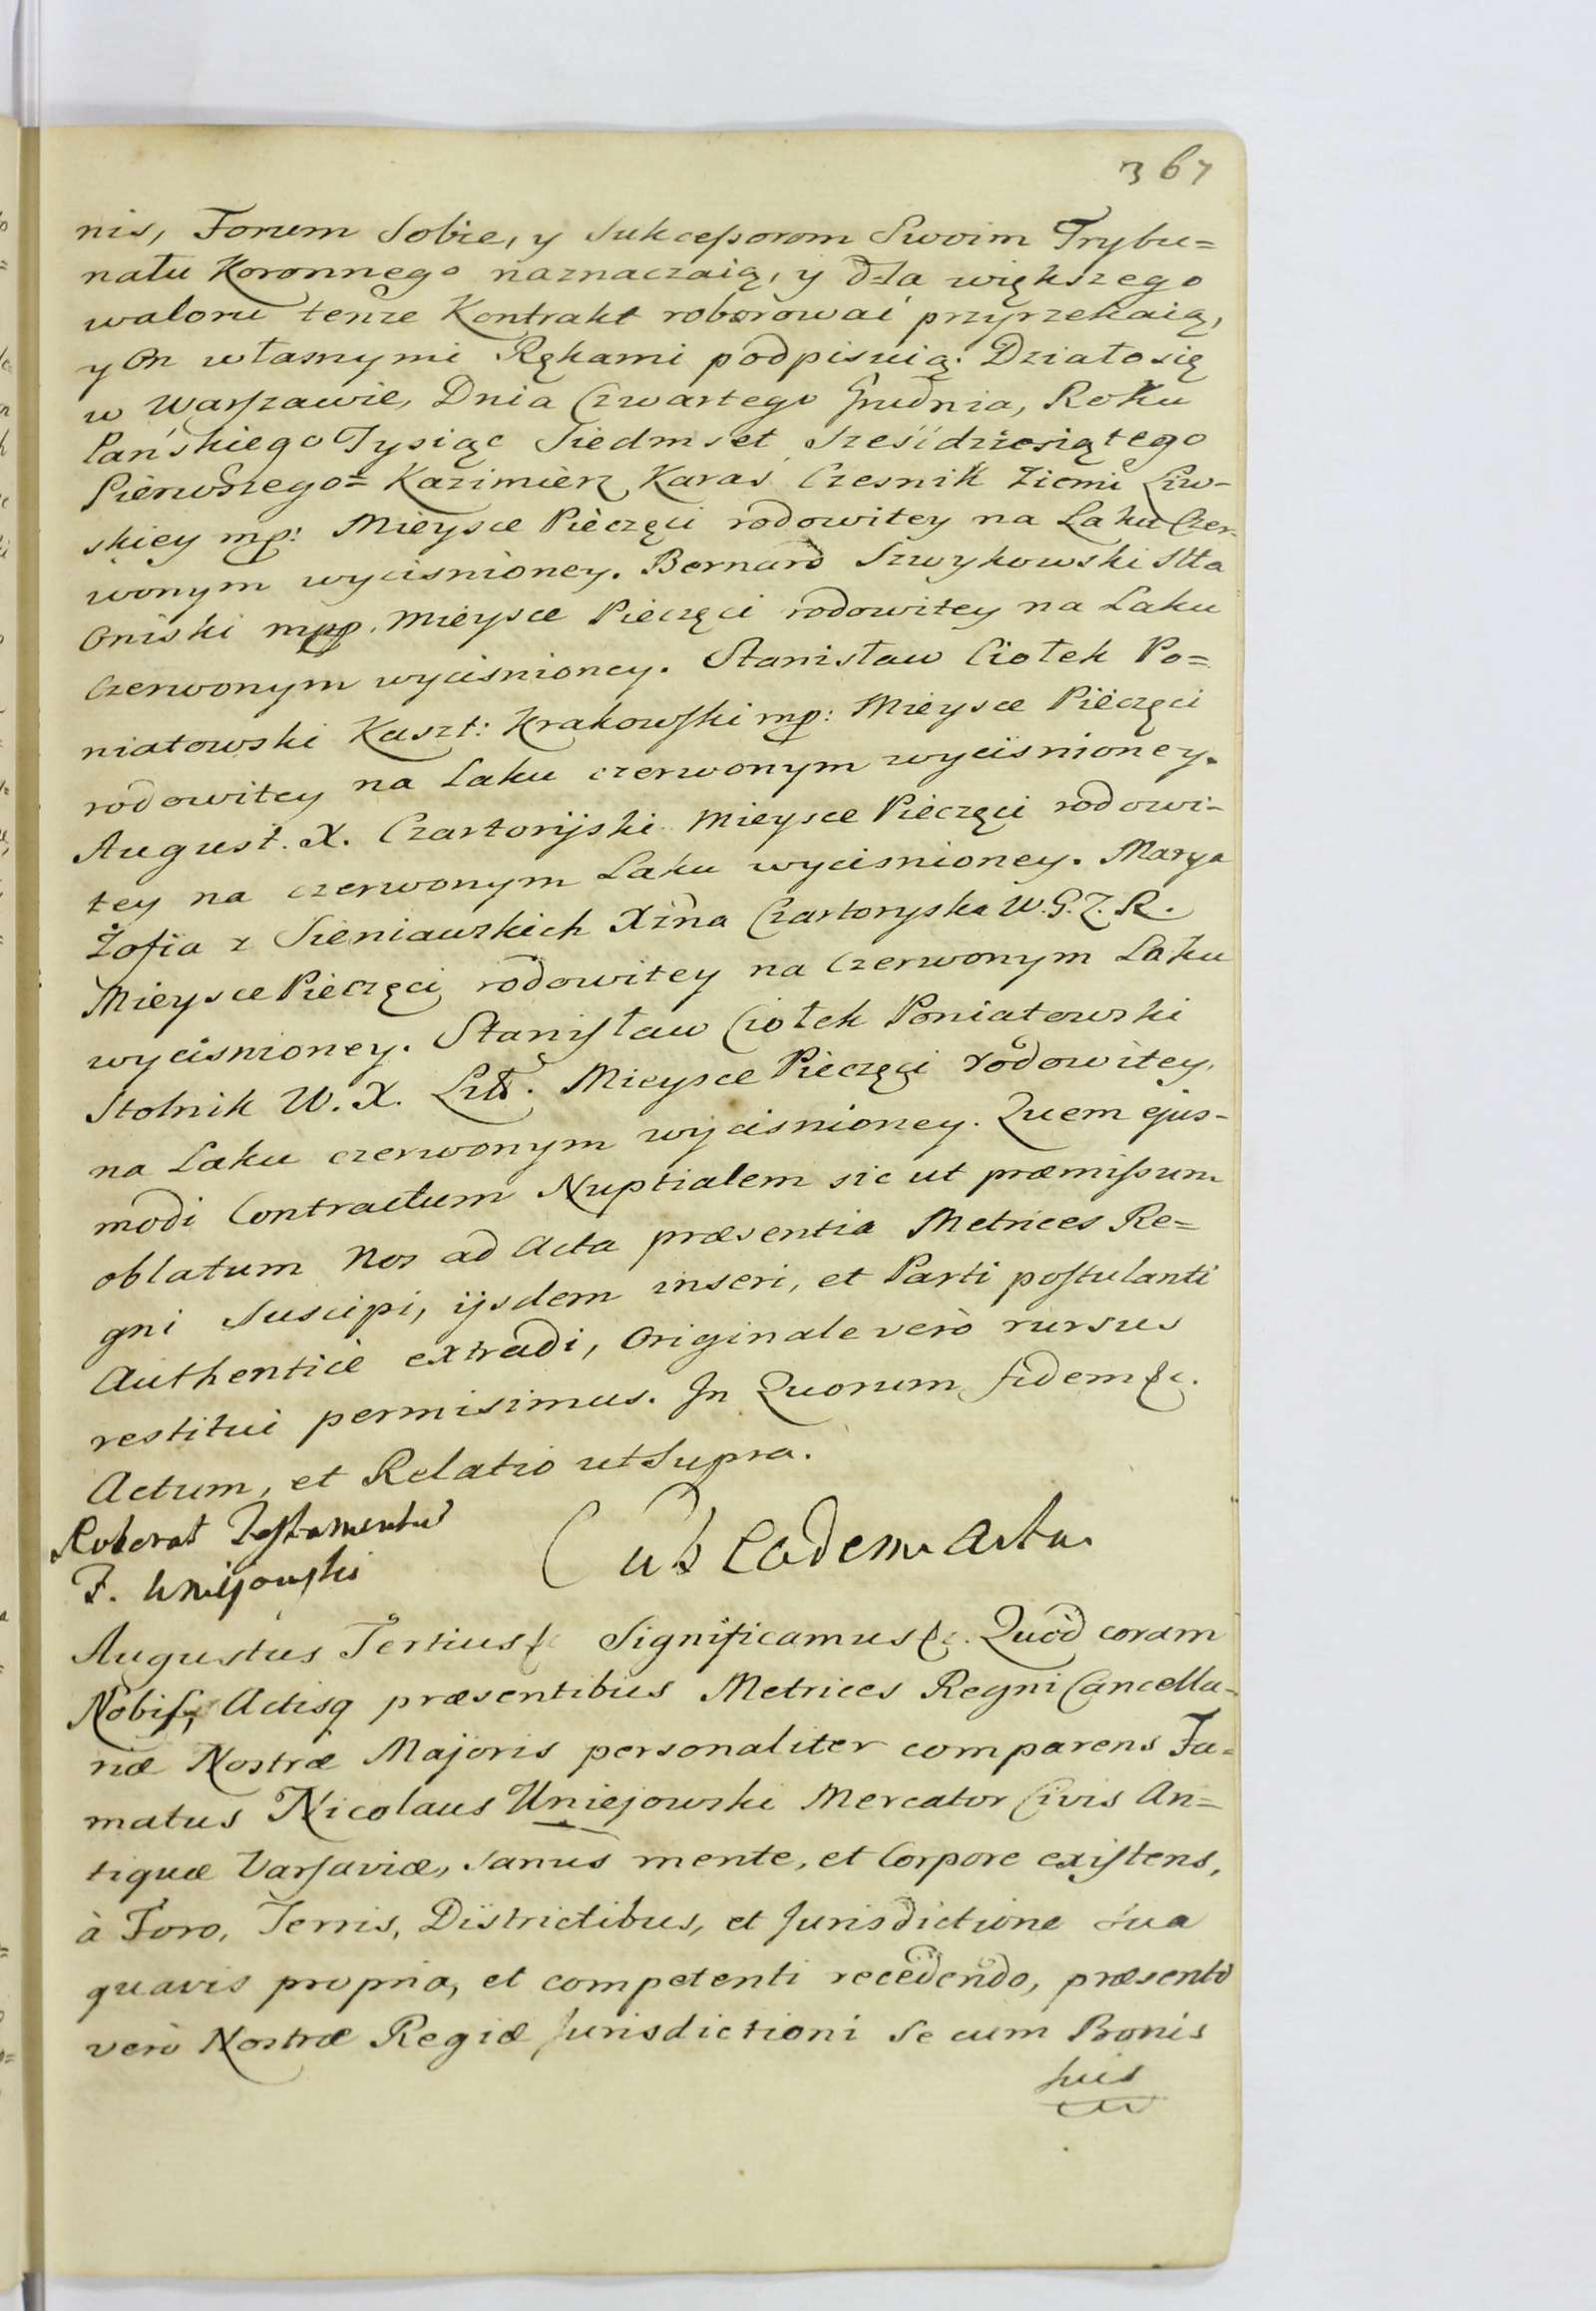 367
nis, Forum Sobie, y Sukcessorom Swoim Trybu=
nału Koronnego naznaczaią, y dla większego
waloru tenże Kontrakt roborować przyrzekaią,
y On własnymi Rękami podpisuią. Działo się
w Warszawie, Dnia Czwartego Grudnia, Roku
Pańskiego Tysiąc Siedmset Sześćdziesiątego
Pierwszego= Kazimierz Karas Czesnik Ziemi Liw-
skiey mp: Mieysce Pieczęci rodowitey na Laku Czer-
wonym wyciśnioney. Bernard Szwykowski Stta
Oniski mpp. Mieysce Pieczęci rodowitey na Laku
Czerwonym wyciśnioney. Stanisław Ciołek Po=
niatowski Kaszt: Krakowski mp: Mieysce Pieczęci
rodowitey na Laku czerwonym wyciśnioney.
August. X. Czartoryski Mieysce Pieczęci rodowi-
tey na czerwonym Laku wyciśnioney. Marya
Zofia z Sieniawskich Xżna Czartoryska W. G. Z. R.
Mieysce Pieczęci rodowitey na Czerwonym Laku
wyciśnioney. Stanisław Ciołek Poniatowski
Stolnik W. X. Litt. Mieysce Pieczęci rodowitey,
na Laku czerwonym wyciśnioney. Quem ejus-
modi Contractum Nuptialem sic ut præmissum
oblatum Nos ad Acta præsentia Metrices Re=
gni Suscipi, ijsdem inseri, et Parti postulanti
Authenticè extradi, Originale verò rursus
restitui permisimus. In Quorum fidem &c.
Actum, et Relatio ut Supra.
Roborat Testamentus
F. Uniejowski
Sub Eadem Actu
Augustus Tertius &c Significamus &c. Quòd coram
Nobis, Actisq præsentibus Metrices Regni Cancella-
riæ Nostræ Majoris personaliter comparens Fa=
matus Nicolaus Uniejowski Mercator Civis An=
tiquæ Varsaviæ, sanus mente, et Corpore existens,
à Foro, Terris, Districtibus, et Jurisdictione sua
quavis propria, et competenti recedendo, præsenti
verò Nostræ Regiæ Jurisdictioni Se cum Bonis
suis